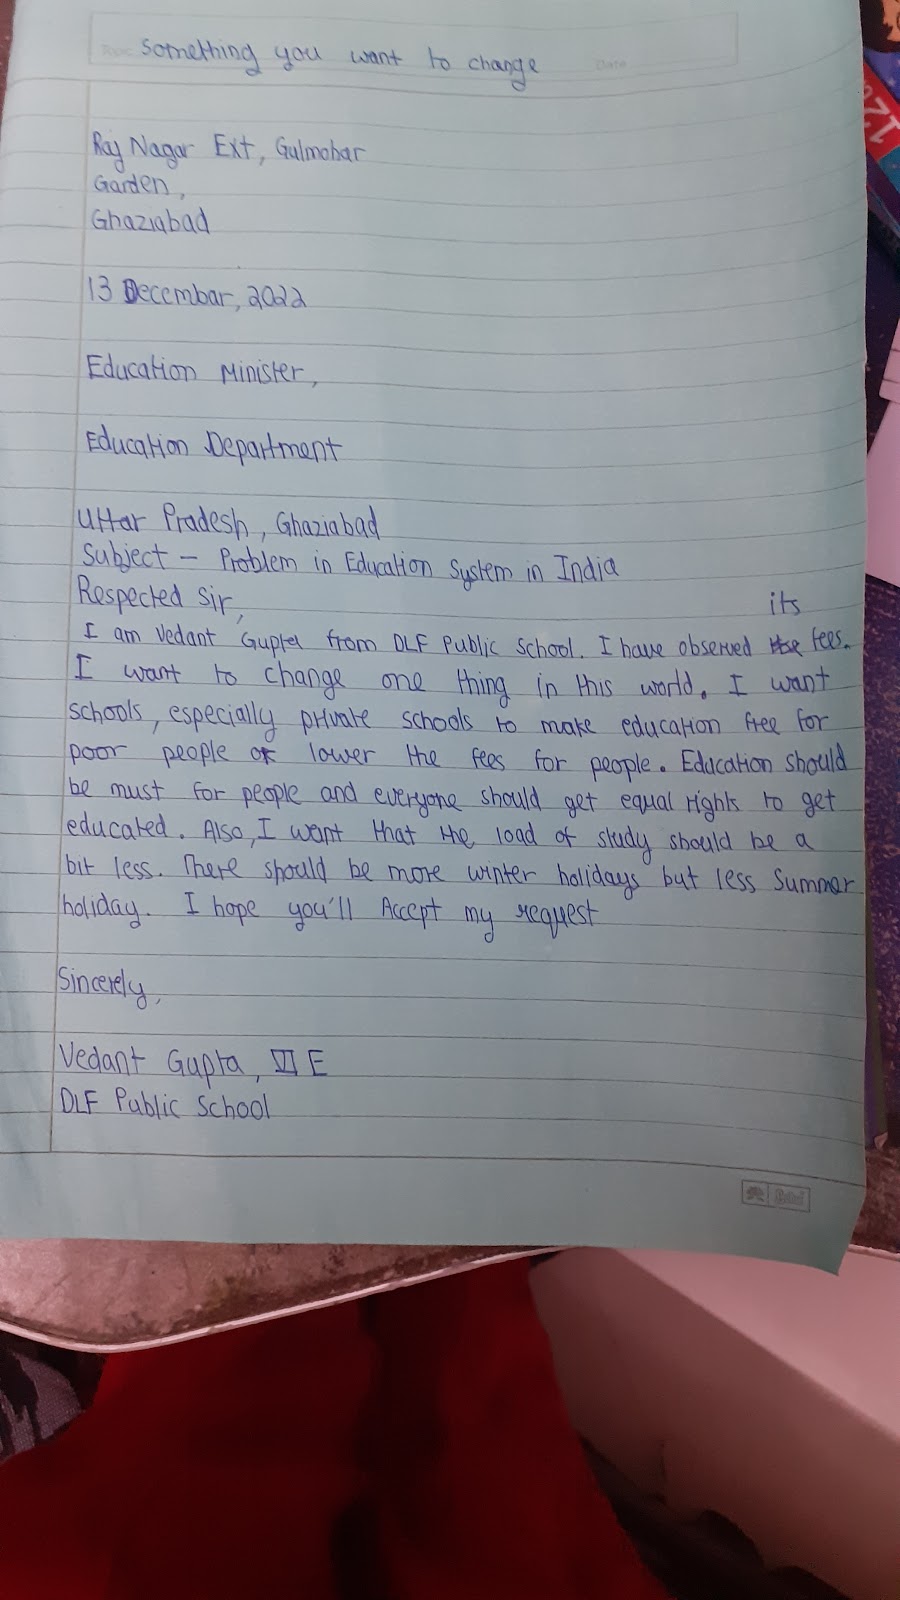 Something you want to change
Date
Raj Nagar Ext, Gulmohar
Garden,
Ghaziabad
13 Decembar, 2022
Education Minister,
Education Department
Uttar Pradesh, Ghaziabad
Subject - Problem in Education System in India
Respected Sir,
its
I am Vedant Gupta from DLF Public School. I have observed fees.
I want to change one thing in this world. I want
schools, especially private schools to make education free for
poor people or lower the fees for people. Education should
be must for people and everyone should get equal rights to get
educated. Also, I want that the load of study should be a
bit less. There should be more winter holidays but less Summer
holiday. I hope you'll Accept my request
Sincerely,
Vedant Gupta, VI E
DLF Public School